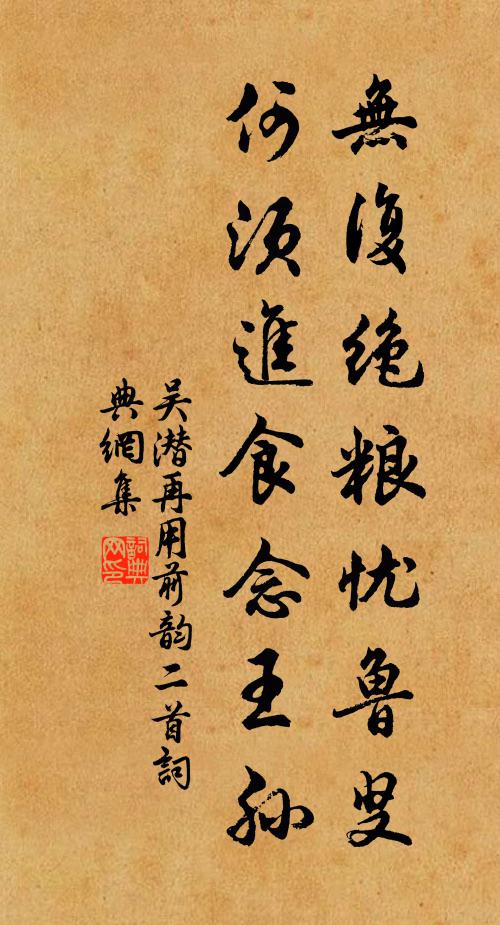 無復绝粮忧鲁叟
何须進食念王孙
吴潜再用前韵二首詞
典網集
詞典网印